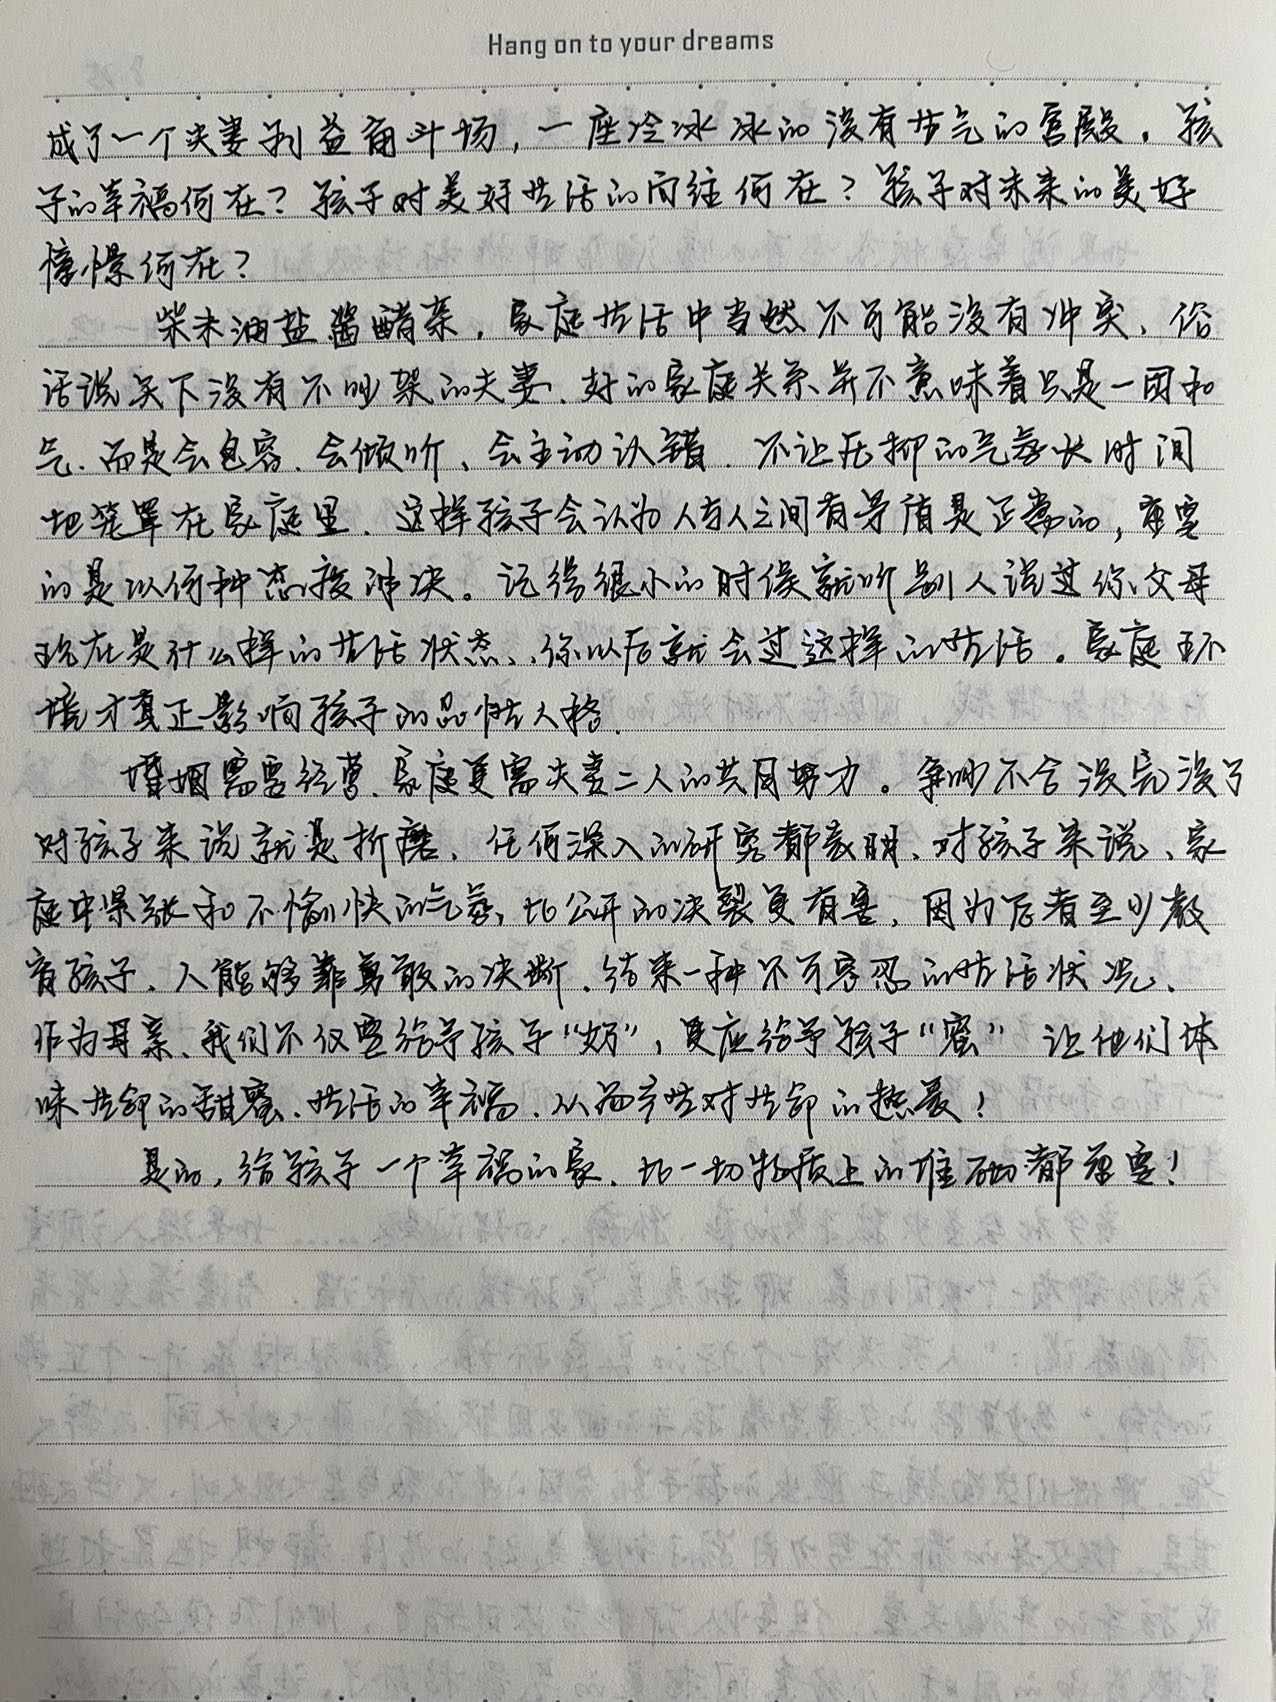 Hang on to your dreams
成了一个夫妻利益角斗场，一座冷冰冰的没有生气的宫殿。孩
子的幸福何在？孩子对美好生活的向往何在？孩子对未来的美好
憧憬何在？
柴米油盐酱醋茶，家庭生活中当然不可能没有冲突、俗
话说天下没有不吵架的夫妻、好的家庭关系并不意味着只是一团和
气、而是会包容、会倾听、会主动认错、不让压抑的气氛长时间
地笼罩在家庭里、这样孩子会认为人与人之间有矛盾是正常的，重要
的是以何种态度决。记得很小的时候就听别人说过你父母
现在是什么样的生活状态、你以后就会过这样的生活。家庭环
境才真正影响孩子的品性人格.
婚姻需要经营、家庭更需夫妻二人的共同努力。争吵不合没完没了
对孩子来说就是折磨、任何深入的研究都表明、对孩子来说、家
庭中紧张和不愉快的气氛，比公开的决裂更有害，因为后者至少教
育孩子、人能够靠勇敢的决断、结束一种不可容忍的生活状况、
作为母亲、我们不仅要给予孩子“奶”，更应给予孩子“蜜” 让他们体
味生命的甜蜜、生活的幸福、从而产生对生命的热爱！
是的，给孩子一个幸福的家、比一切物质上的堆砌都重要！